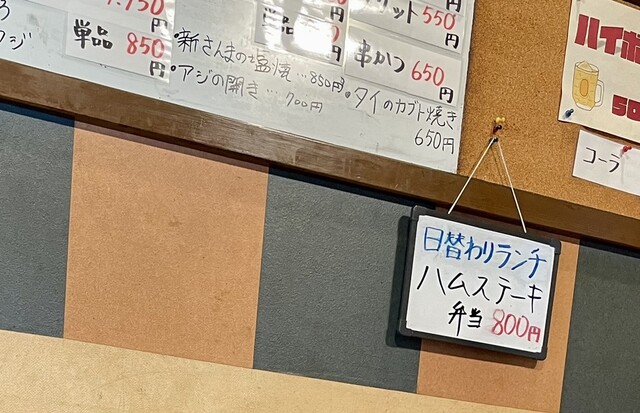 単品 850円
・新さんまの塩焼…850円
・アジの開き…700円
単品
リット550円
串かつ 650円
・タイのカブト焼き
650円
ハイボ
50
コーラ
日替わりランチ
ハムステーキ
弁当 800円